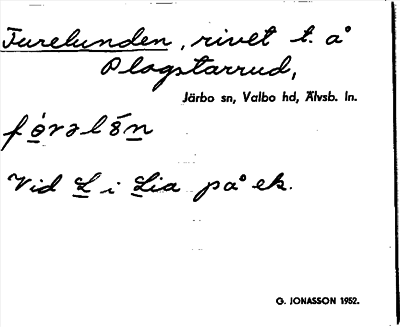 Furelunden, rivet t. å
Plogstarrud,
Järbo sn, Valbo hd, Älvsb. ln.
Vid L i Lia på ek.
G. JONASSON 1952.